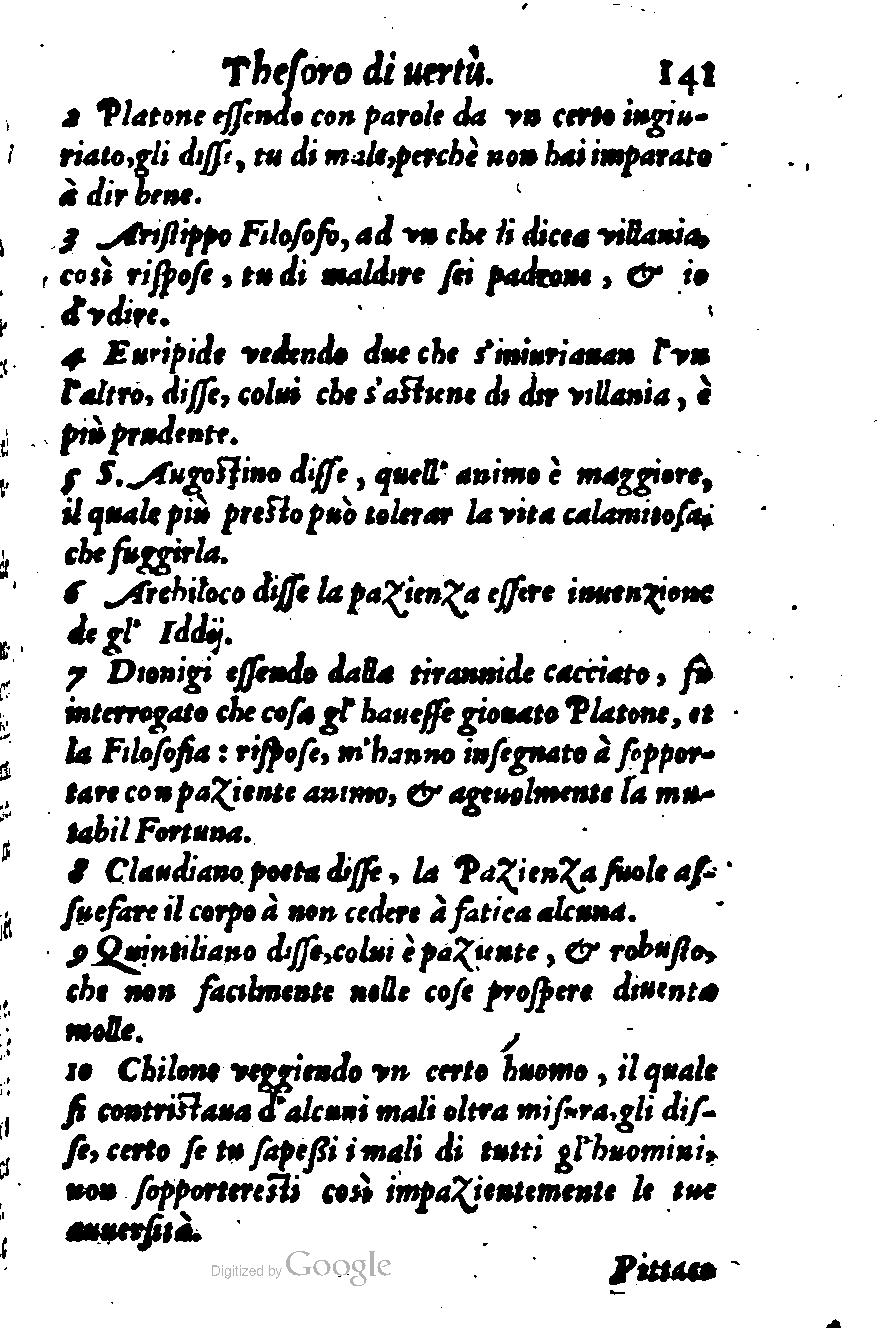 Theſoro di uertù. 141
2 Platone eſſendo con parole da vn certo ingiu-
riato, gli diſſe, tu di male, perchè non hai imparato
à dir bene.
3 Ariſtippo Filoſofo, ad vn che li dicea villania,
così riſpoſe, tu di maldire ſei padrone, & io
d'vdire.
4 Euripide vedendo due che s'iniuriauan l'vn
l'altro, diſſe, colui che s'aſtiene di dir villania, è
più prudente.
5 S. Augoſtino diſſe, quell' animo è maggiore,
il quale più preſto può tolerar la vita calamitoſa,
che fuggirla.
6 Archiloco diſſe la pazienza eſſere inuenzione
de gl' Iddij.
7 Dionigi eſſendo dalla tirannide cacciato, fù
interrogato che coſa gl' haueſſe giouato Platone, et
la Filoſofia : riſpoſe, m'hanno inſegnato à ſoppor-
tare con paziente animo, & ageuolmente la mu-
tabil Fortuna.
8 Claudiano poeta diſſe, la Pazienza ſuole aſ-
ſuefare il corpo à non cedere à fatica alcuna.
9 Quintiliano diſſe, colui è paziente, & robuſto,
che non facilmente nelle coſe proſpere diuenta
molle.
10 Chilone veggiendo vn certo huomo, il quale
ſi contriſtaua d'alcuni mali oltra miſura, gli diſ-
ſe, certo ſe tu ſapeſſi i mali di tutti gl'huomini,
non ſopportereſti così impazientemente le tue
auuerſità.
Pittaco
Digitized by Google